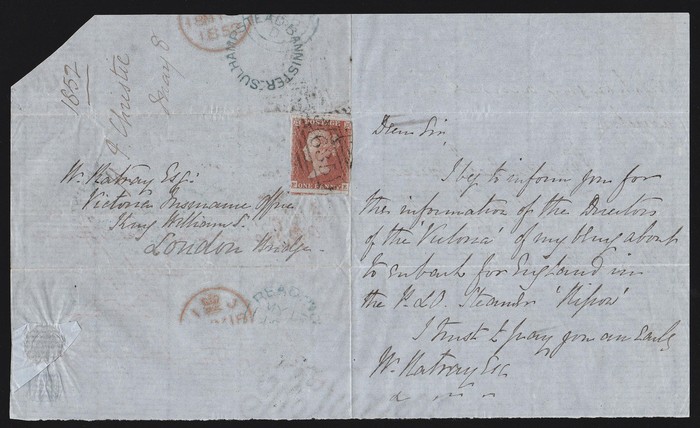 1852
J Christie
May 8
1852
SULHAMPSTEAD-BANNISTER
W. Ratray Esq:
Victoria Insurance Office
King William St.
London Bridge
POSTAGE
635
ONE PENNY
READING
Dear Sir,
I beg to inform you for
the information of the Directors
of the 'Victoria' of my being about
to embark for England in
the P. & O. Steamer 'Ripon'
I trust to pay you an early
W. Ratray Esq